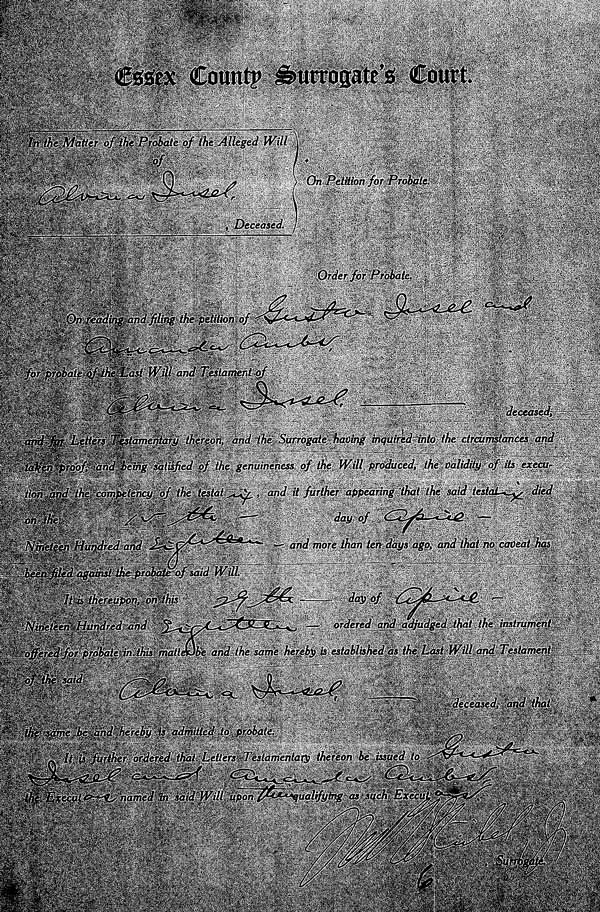 Essex County Surrogate's Court.
In the Matter of the Probate of the Alleged Will
of
Alvina Insel,
, Deceased.
On Petition for Probate.
Order for Probate.
On reading and filing the petition of Gustav Insel and
Amanda Ambs,
for probate of the Last Will and Testament of
Alvina Insel, deceased,
and for Letters Testamentary thereon, and the Surrogate having inquired into the circumstances and
taken proof; and being satisfied of the genuineness of the Will produced, the validity of its execu-
tion and the competency of the testatrix, and it further appearing that the said testatrix died
on the 15th - day of April -
Nineteen Hundred and Eighteen - and more than ten days ago, and that no caveat has
been filed against the probate of said Will.
It is thereupon, on this 29th - day of April -
Nineteen Hundred and Eighteen - ordered and adjudged that the instrument
offered for probate in this matter be and the same hereby is established as the Last Will and Testament
of the said Alvina Insel, deceased, and that
the same be and hereby is admitted to probate.
It is further ordered that Letters Testamentary thereon be issued to Gustav
Insel and Amanda Ambs,
the Executors named in said Will upon their qualifying as such Executors
Surrogate.
6